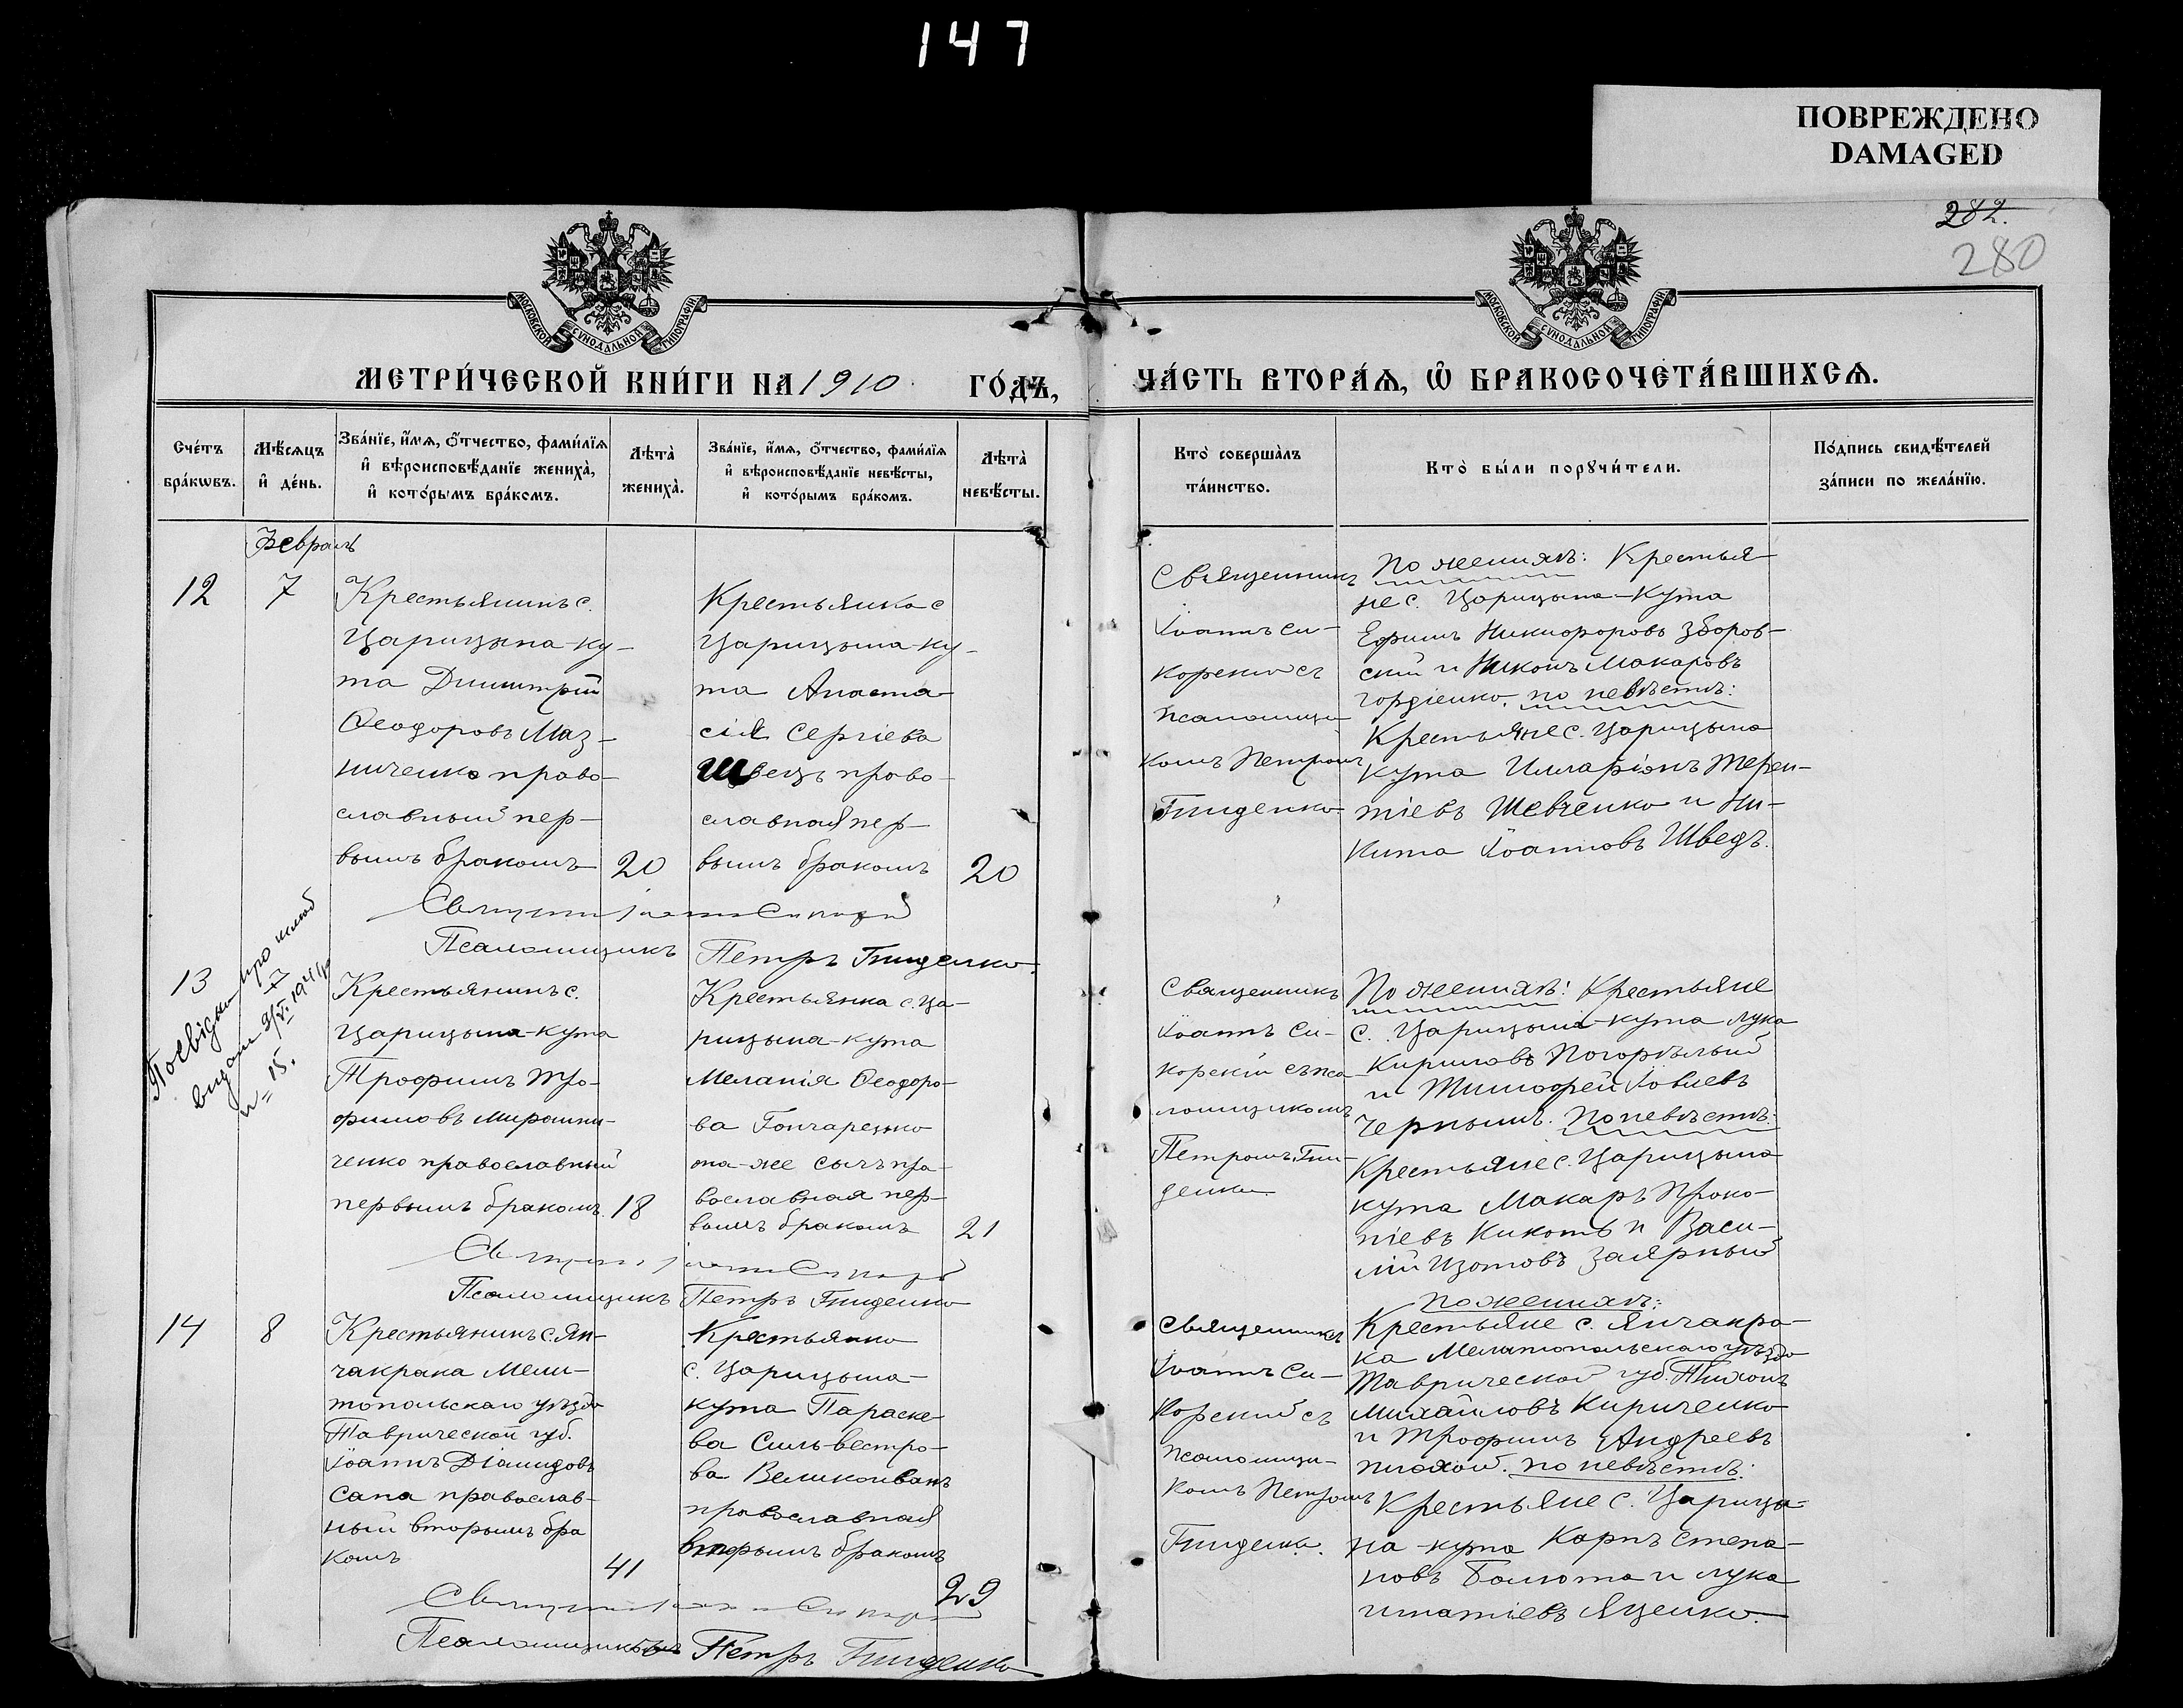 147
ПОВРЕЖДЕНО
DAMAGED
282.
280
МОСКОВСКОЙ СѴНОДАЛЬНОЙ ТИПОГРАФІИ
МОСКОВСКОЙ СѴНОДАЛЬНОЙ ТИПОГРАФІИ
МЕТРИ́ЧЕСКОЙ КНИ́ГИ НА 1910 ГО́ДЪ,
ЧА́СТЬ ВТОРА́Ѧ, Ѡ҆ БРАКОСОЧЕТА́ВШИХСѦ.
Сче́тъ
бра́кѡвъ.
Мѣ́сѧцъ
и҆ де́нь.
Зва́нїе, и҆́мѧ, ѻ҆́тчество, фами́лїѧ
и҆ вѣроисповѣ́данїе жениха̀,
и҆ кото́рымъ бра́комъ.
Лѣта̀
жениха̀.
Зва́нїе, и҆́мѧ, ѻ҆́тчество, фами́лїѧ
и҆ вѣроисповѣ́данїе невѣ́сты,
и҆ кото́рымъ бра́комъ.
Лѣта̀
невѣ́сты.
Кто̀ соверша̀лъ
та́инство.
Кто̀ бы́ли порꙋчи́тели.
По́дпись свидѣ́телей
за́писи по жела́нїю.
Февраль
12
7
Крестьянинъ с.
Царицына-Ку-
та Димитрій
Ѳеодоровъ Маз-
ниченко право-
славный пер-
вымъ бракомъ
20
Крестьянка с
Царицына-Ку-
та Анаста-
сія Сергіева
Швецъ право-
славная пер-
вымъ бракомъ
20
Священникъ
Іоаннъ Си-
корскій съ
псаломщи-
комъ Петромъ
Гниденко
По женихѣ: Крестья-
не с. Царицына-Кута
Ефимъ Никифоровъ Зборов-
скій и Никонъ Макаровъ
Гордіенко. по невѣстѣ:
Крестьяне с. Царицына
Кута Илларіонъ Терен-
тіевъ Шевченко и Ни-
кита Іоанновъ Шведъ.
Псаломщикъ Петръ Гниденко.
13
Посвідку про шлюб
видан 9/VI 1941 р
№ 15.
7
Крестьянинъ с.
Царицына-Кута
Трофимъ Тро-
фимовъ Мирошни-
ченко православный
первымъ бракомъ.
18
Крестьянка с. Ца-
рицына-Кута
Меланія Ѳеодоро-
ва Гончаренко
она-же Сычъ пра-
вославная пер-
вымъ бракомъ
21
Священникъ
Іоаннъ Си-
корскій съ пса-
ломщикомъ
Петромъ Гни-
денко
По женихѣ: Крестьяне
с. Царицына-Кута Лука
Кириловъ Погорѣлый
и Тимофей Іовлевъ
Чернышъ. По невѣстѣ:
Крестьяне с. Царицына
Кута Макаръ Проко-
піевъ Кикоть и Васи-
лій Изотовъ Заярный
Псаломщикъ Петръ Гниденко
14
8
Крестьянинъ с. Ян-
чакрака Мели-
топольскаго уѣзда
Таврической губ.
Іоаннъ Діамидовъ
Сапа православ-
ный вторымъ бра
комъ
41
Крестьянка
с. Царицына-
Кута Параске-
ва Сильвестро-
ва Великоиванъ
православная
вторымъ бракомъ
29
Священникъ
Іоаннъ Си-
корскій съ
псаломщи-
комъ Петромъ
Гниденко.
По женихѣ:
Крестьяне с. Янчакра-
ка Мелитопольскаго уѣзда
Таврической губ. Тихонъ
Михайловъ Кириченко
и Трофимъ Андреевъ
Плохой. по невѣстѣ:
Крестьяне с. Царицы-
на-Кута Карпъ Степа-
новъ Болюта и Лука
Игнатіевъ Яценко.
Псаломщикъ Петръ Гниденко